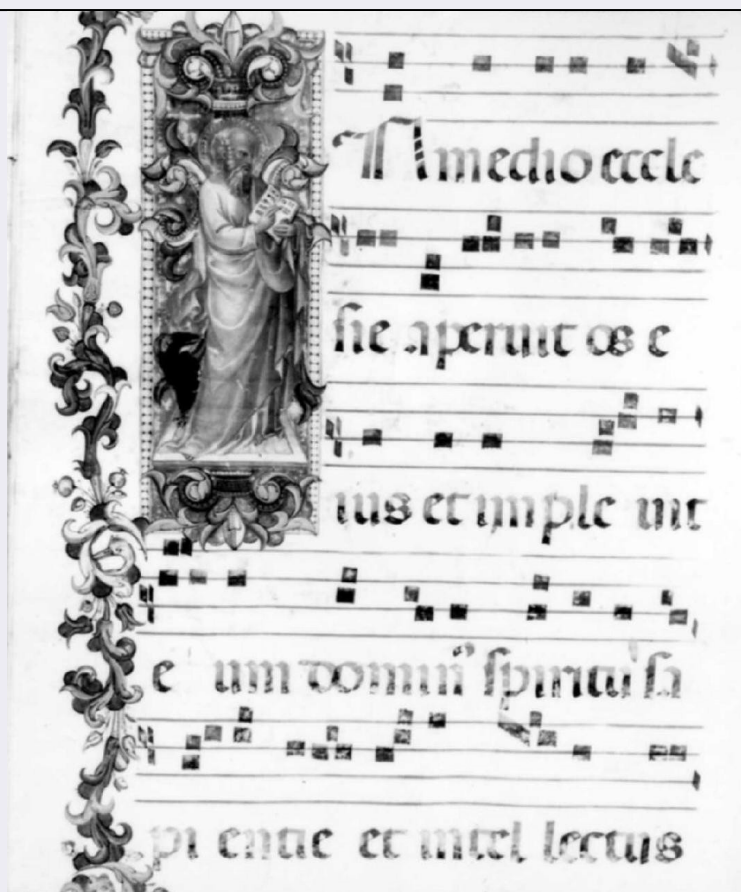 IN medio eccle
sie aperuit os e
ius et imple uit
e um dominus spiritu sa
pi entie et intel lectus